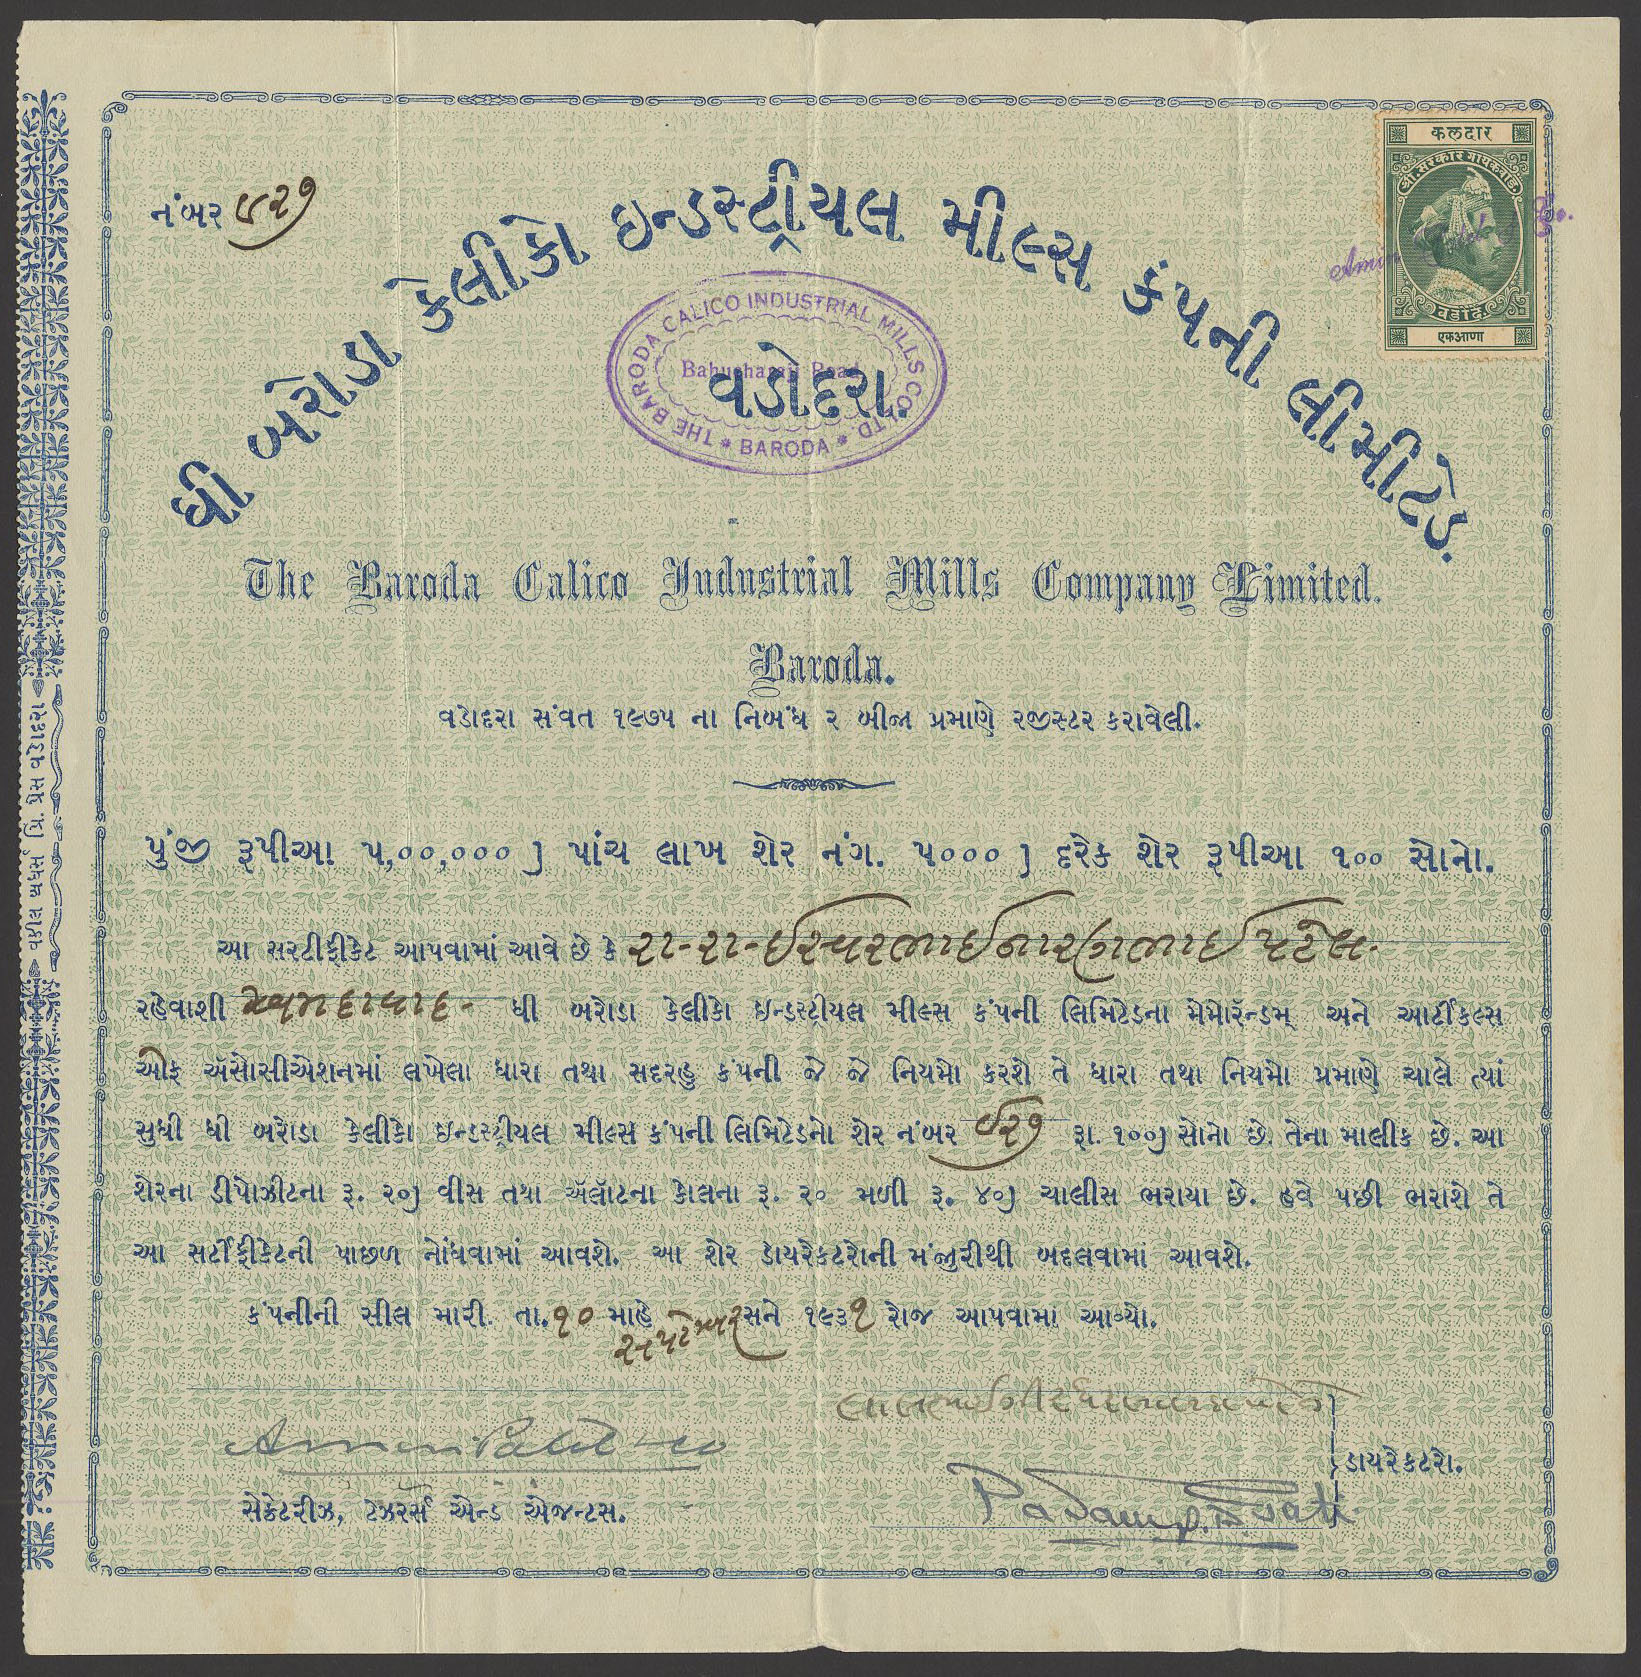 નંબર ૬૨૭
ધી બરોડા કેલીકો ઇન્ડસ્ટ્રીયલ મીલ્સ કંપની લીમીટેડ.
कलदार
श्री. सरकार गायकवाड.
वडोदें
एकआणा
THE BARODA CALICO INDUSTRIAL MILLS CO LTD
* BARODA *
વડોદરા.
The Baroda Calico Industrial Mills Company Limited.
Baroda.
વડોદરા સંવત ૧૯૭૫ ના નિબંધ ૨ બીજા પ્રમાણે રજીસ્ટર કરાવેલી.
પુંજી રૂપીઆ ૫,૦૦,૦૦૦) પાંચ લાખ શેર નંગ. ૫૦૦૦) દરેક શેર રૂપીઆ ૧૦૦ સૌનો.
આ સરટીફીકેટ આપવામાં આવે છે કે રા-રા-ઈશ્વરભાઈ નારણભાઈ પટેલ-
રહેવાશી અમદાવાદ- ધી બરોડા કેલીકો ઇન્ડસ્ટ્રીયલ મીલ્સ કંપની લિમિટેડના મેમોરૅન્ડમ્ અને આર્ટીકલ્સ
ઓફ ઍસોસીએશનમાં લખેલા ધારા તથા સદરહુ કંપની જે જે નિયમો કરશે તે ધારા તથા નિયમો પ્રમાણે ચાલે ત્યાં
સુધી ધી બરોડા કેલીકો ઇન્ડસ્ટ્રીયલ મીલ્સ કંપની લિમિટેડનો શેર નંબર ૬૨૭ રૂા. ૧૦૦) સોનો છે. તેના માલીક છે. આ
શેરના ડીપોઝીટના રૂ. ૨૦) વીસ તથા ઍલૉટના કોલના રૂ. ૨૦ મળી રૂ. ૪૦) ચાલીસ ભરાયા છે. હવે પછી ભરાશે તે
આ સર્ટીફીકેટની પાછળ નોંધવામાં આવશે. આ શેર ડાયરેકટરોની મંજુરીથી બદલવામાં આવશે.
કંપનીની સીલ મારી. તા. ૧૦ માહે સપટેમ્બર સને ૧૯૩૧ રોજ આપવામાં આવ્યો.
Amin Patel & Co
સેક્રેટરીઝ, ટ્રેઝરર્સ એન્ડ એજન્ટસ.
ડાયરેકટરો.
વકીલ બ્રધર્સ પ્રિ. પ્રેસ વડોદરા